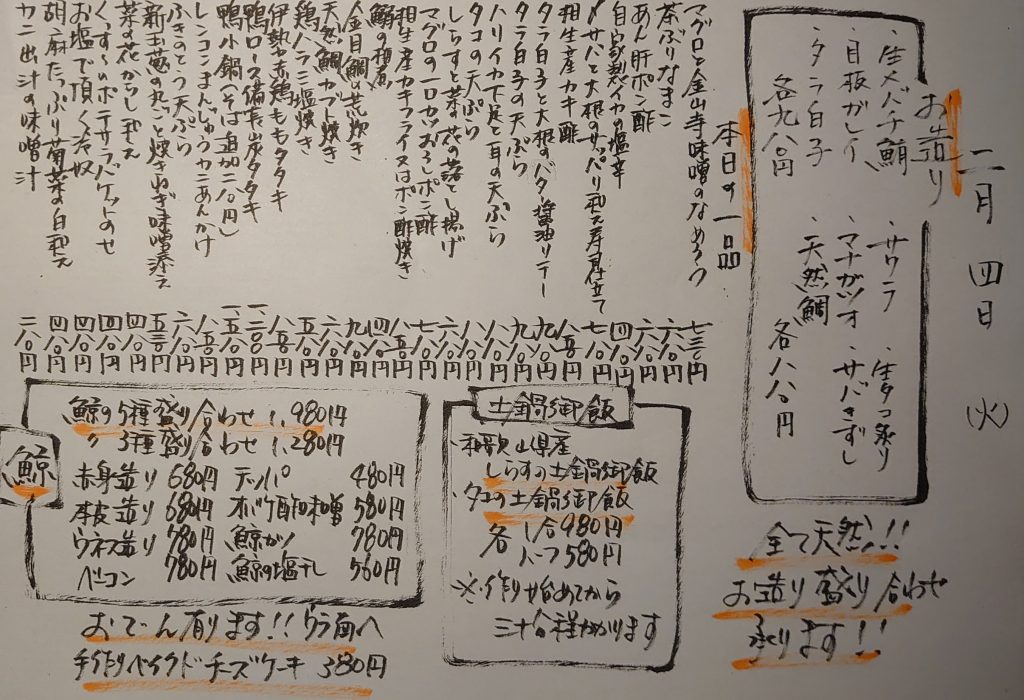 二月四日(火)
お造り
・生メバチ鮪
・目板ガレイ
・タラ白子
各九八〇円
・サワラ
・マナガツオ
・天然鯛
・生タコ造り
・サバきずし
各八八〇円
全て天然!!
お造り盛り合わせ
承ります!!
本日の一品
マグロと金山寺味噌のなめろう 七三〇円
茶ぶりなまこ 六八〇円
あん肝ポン酢 六八〇円
自家製イカの塩辛 四八〇円
〆サバと大根のサッパリ和え寿司仕立て 七八〇円
相生産カキ酢 八五〇円
タラ白子と大根のバター醤油ソテー 九八〇円
タラ白子の天ぷら 九八〇円
ハリイカ下足と耳の天ぷら 八八〇円
タコの天ぷら 八八〇円
しらすと菜の花の落とし揚げ 六八〇円
マグロの一口カツおろしポン酢 七八〇円
相生産カキフライ又はポン酢焼き 八五〇円
金目鯛の荒炊き 九八〇円
天然鯛カブト焼き 六八〇円
鶏ハラミ塩焼き 五八〇円
伊勢赤鶏ももタタキ 八五〇円
鴨ロース備長炭タタキ 一二〇〇円
鴨小鍋(そば追加二八〇円) 一五〇〇円
レンコンまんじゅうカニあんかけ 八五〇円
ふきのとう天ぷら 六八〇円
新玉葱の丸ごと焼きねぎ味噌添え 五三〇円
菜の花からし和え 四八〇円
くずし〜のポテサラバケットのせ 四八〇円
お塩で頂く冷奴 四八〇円
胡麻たっぷり菊菜の白和え 四八〇円
カニ出汁の味噌汁 二八〇円
土鍋御飯
・和歌山県産
しらすの土鍋御飯
・タコの土鍋御飯
各 1合980円
ハーフ580円
※作り始めてから
三十分程かかります
鯨
鯨の5種盛り合わせ 1,980円
〃 3種盛り合わせ 1,280円
赤身造り 680円 テッパ 480円
本皮造り 680円 オバケ酢味噌 580円
ウネス造り 780円 鯨カツ 780円
ベーコン 780円 鯨の塩干し 560円
おでん有ります!!ウラ面へ
手作りベイクドチーズケーキ 380円